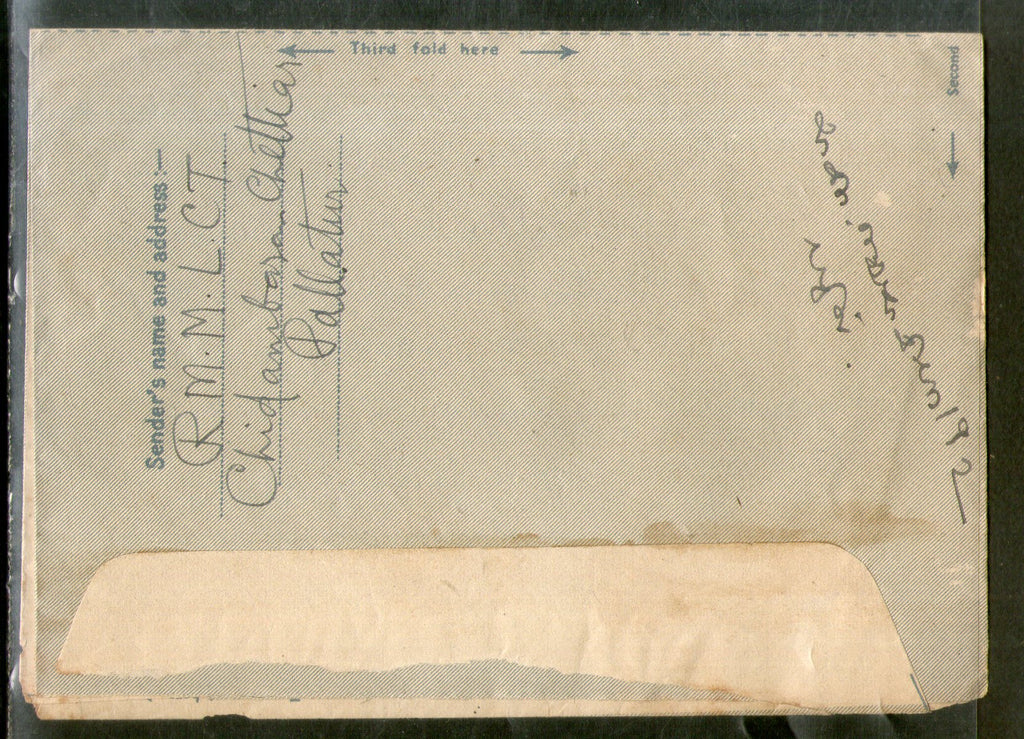 Third fold here
Second
Sender's name and address :—
R M. M. L. C T
Chidambaram Chettiar
Pallatur